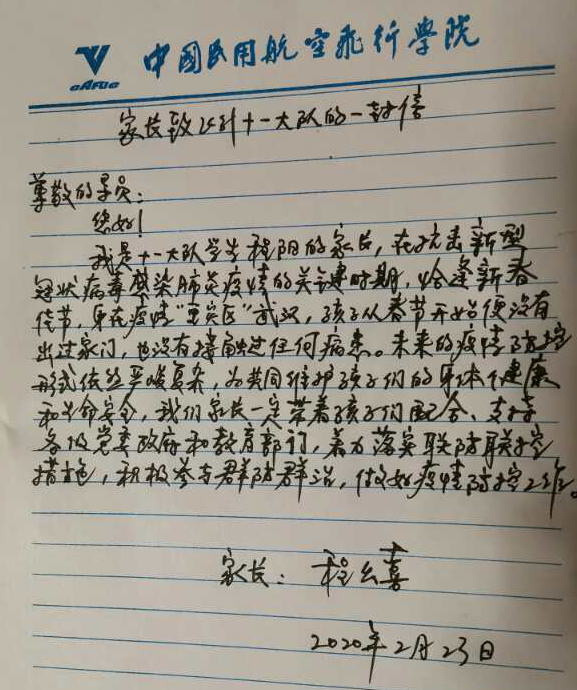 CAFUC 中國民用航空飛行學院
家长致以到十一大队的一封信
尊敬的学员:
您好!
我是十一大队学生程阳的家长,在抗击新型
冠状病毒感染肺炎疫情的关键时期,恰逢新春
佳节,身在疫情“重灾区”武汉,孩子从春节开始便没有
出过家门,也没有接触过任何病患。未来的疫情防控
形式依然严峻复杂,为共同维护孩子们的身体健康
和生命安全,我们家长一定带着孩子们配合、支持
各级党委政府和教育部门,着力落实联防联控
措施,积极参与群防群治,做好疫情防控工作。
家长:程
2020年2月23日